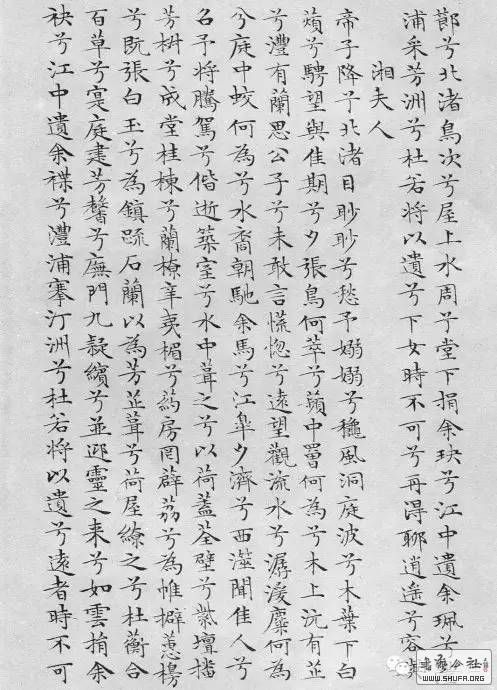 節兮北渚鳥次兮屋上水周兮堂下捐余玦兮江中遺余珮兮
浦采芳洲兮杜若將以遺兮下女時不可兮再得聊逍遙兮容
湘夫人
帝子降兮北渚目眇眇兮愁予嫋嫋兮穐風洞庭波兮木葉下白
薠兮騁望與佳期兮夕張鳥何萃兮蘋中罾何為兮木上沅有芷
兮澧有蘭思公子兮未敢言慌惚兮遠望觀流水兮潺湲麋何為
兮庭中蛟何為兮水裔朝馳余馬兮江皋夕濟兮西澨聞佳人兮
名予將騰駕兮偕逝築室兮水中葺之兮以荷蓋荃壁兮紫壇播
芳椒兮成堂桂棟兮蘭橑辛夷楣兮葯房罔薜荔兮為帷擗蕙櫋
兮既張白玉兮為鎮疏石蘭以為芳芷葺兮荷屋繚之兮杜蘅合
百草兮實庭建芳馨兮廡門九疑繽兮並迎靈之来兮如雲捐余
袂兮江中遺余褋兮澧浦搴汀洲兮杜若將以遺兮遠者時不可
書藝公社
WWW.SHUFA.ORG